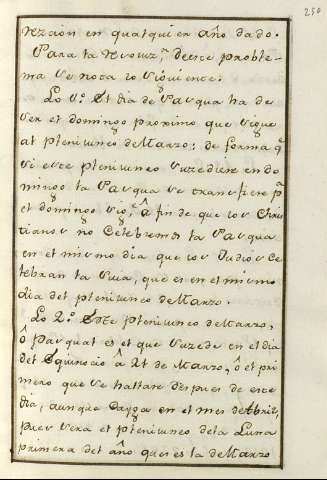 250
rezcion en qualquier año dado.
Para la resoluz.n de este proble-
ma se nota lo siguiente.
Lo 1.º El dia de Pasqua ha de
ser el domingo proximo que sigue
al plenilunio de Marzo: de forma q.e
si este plenilunio suzediere en do
mingo la Pasqua se transfiere p.a
el domingo sig.te â fin de que los Chris
tianos no celebremos la Pasqua
en el mismo dia que los Judios ce
lebran la suia, que es en el mismo
dia del plenilunio de Marzo.
Lo 2.º Este plenilunio de Marzo,
ô Pasqual es el que suzede en el dia
del Equinocio â 21 de Marzo, ô el pri
mero que se hallare despues de este
dia, aunque cayga en el mes de Abril,
pues sera el plenilunio de la Luna
primera del año que es la de Marzo